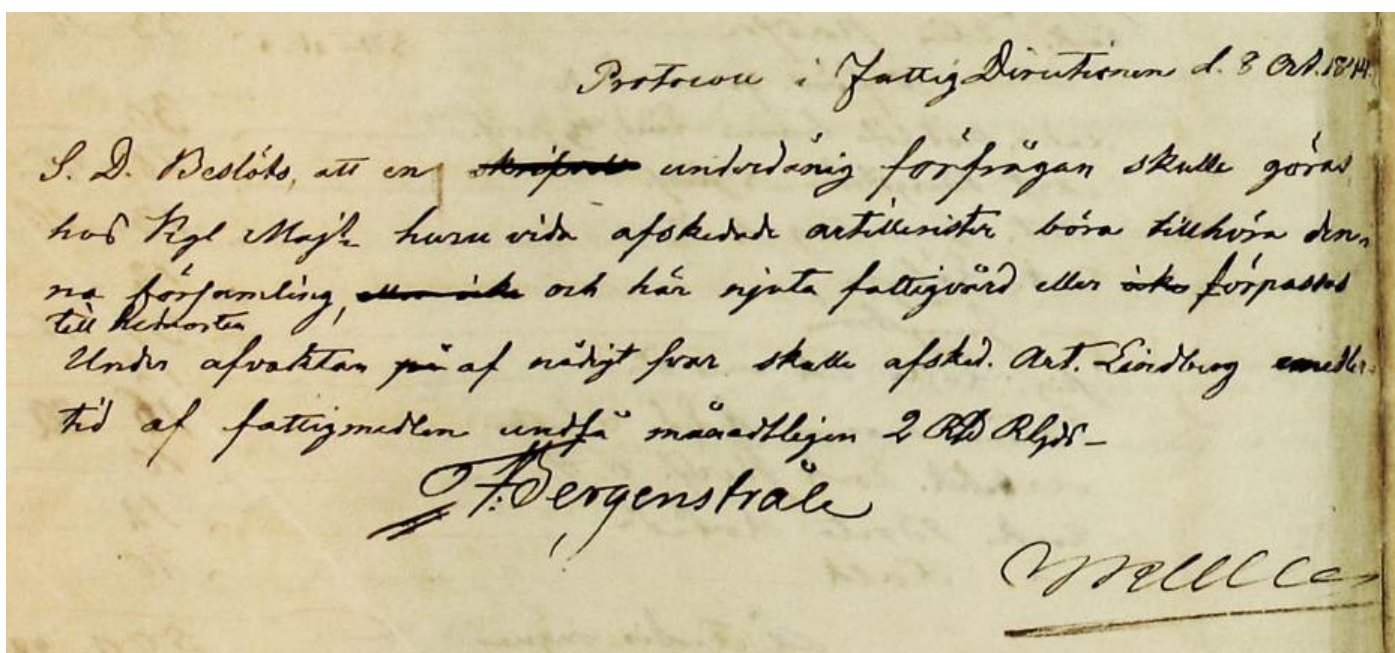 Protocoll i Fattig Directionen d. 8 Oct. 1844.
S. D. Beslöts, att en underdånig förfrågan skulle göras
hos Kgl Majt huru vida afskedade artillerister böra tillhöra den-
na församling, och här njuta fattigvård eller förpassas
till hemorten
Under afvaktan af nådigt svar skulle afsked. Art. Lindberg emedler-
tid af fattigmedlen undfå månadtligen 2 RD Rgds
F. Bergenstråle